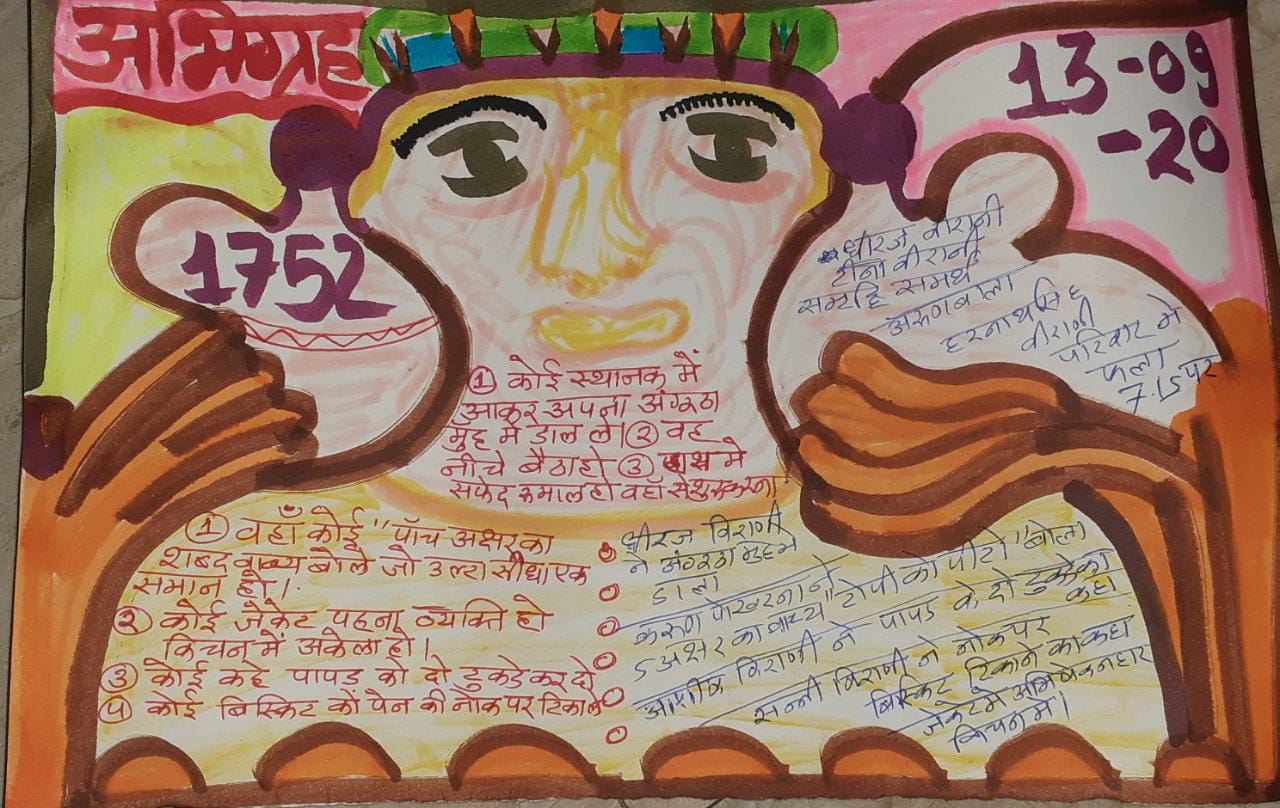 अभिग्रह
13-09
-20
1752
धीरज वीरानी
टीना वीरानी
समर्थ
अरुणवाला
हरनाथसिंह
वीराणी
परिवार में
फला
7.15 पर
① कोई स्थानक में
आकर अपना अंगूठा
मुह में डाल ले। ② वह
नीचे बैठा हो ③ हाथ में
सफेद रूमाल हो वहाँ से शुरू करना
① वहाँ कोई "पाँच अक्षर का
शब्द वाक्य बोले जो उल्टा सीधा एक
समान हो।
② कोई जैकेट पहना व्यक्ति हो
किचन में अकेला हो।
③ कोई कहे पापड़ को दो टुकडे कर दो
④ कोई बिस्किट को पेन की नोक पर टिकाले
धीरज विराणी
ने अंगूठा मुह में
डाला
करुण पोखरना ने
5 अक्षर का वाक्य "टोपी को पीटो" बोला
आशीष विराणी ने पापड के दो टुकडे का
कहा
सन्नी विराणी ने नोक पर
बिस्किट टिकाने का कहा
जैकेट में अभिषेक नहार
किचन में।